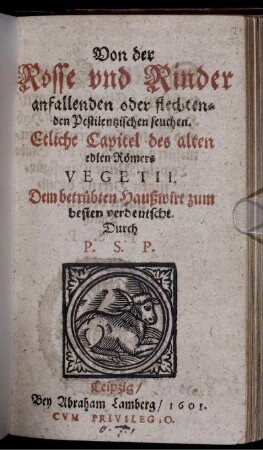 Von der
Rosse vnd Rinder
anfallenden oder flechten-
den Pestilentzischen seuchen.
Etliche Capitel des alten
edlen Römers
VEGETII.
Dem betrübten Haußwirt zum
besten verdeutscht.
Durch
P. S. P.
Leipzig/
Bey Abraham Lamberg/ 1601.
CVM PRIVILEGIO.